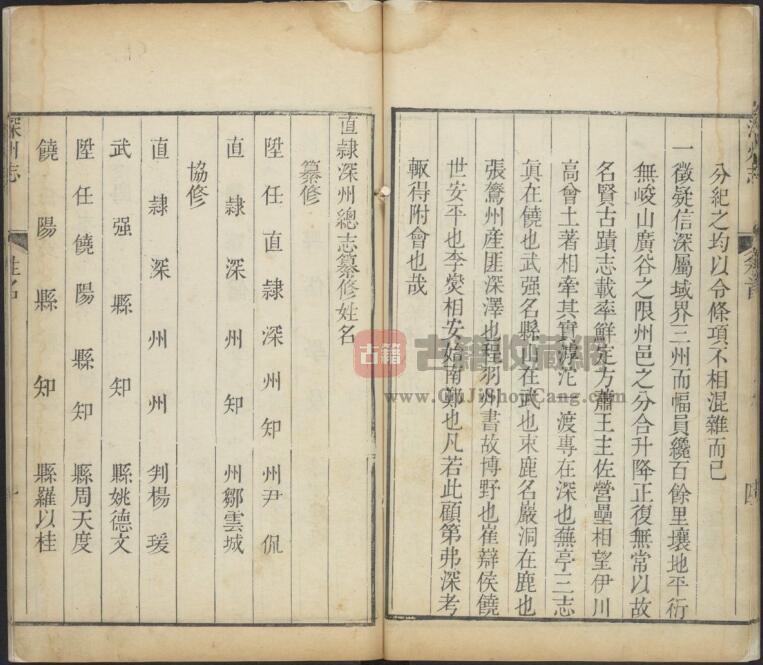 分紀之均以令條項不相混雜而已
一徵疑信深屬域界三州而幅員纔百餘里壤地平衍
無峻山廣谷之限州邑之分合升降正復無常以故
名賢古蹟志載率鮮定方蕭王主佐營壘相望伊川
高曾土著相牽其實滹沱一渡專在深也蕪亭三志
眞在饒也武强名縣山在武也束鹿名巖洞在鹿也
張鷟州產匪深澤也程羽州書故博野也崔辯侯饒
世安平也李爕相安始南鄭也凡若此顧第弗深考
輒得附會也哉
直隷深州總志纂修姓名
纂修
陞任直隷深州知州尹侃
直隷深州知州鄒雲城
協修
直隷深州州判楊瑗
武强縣知縣姚德文
陞任饒陽縣知縣周天度
饒陽縣知縣羅以桂
深州志
姓名
古籍
古籍收藏網
www.GuJiShouCang.com